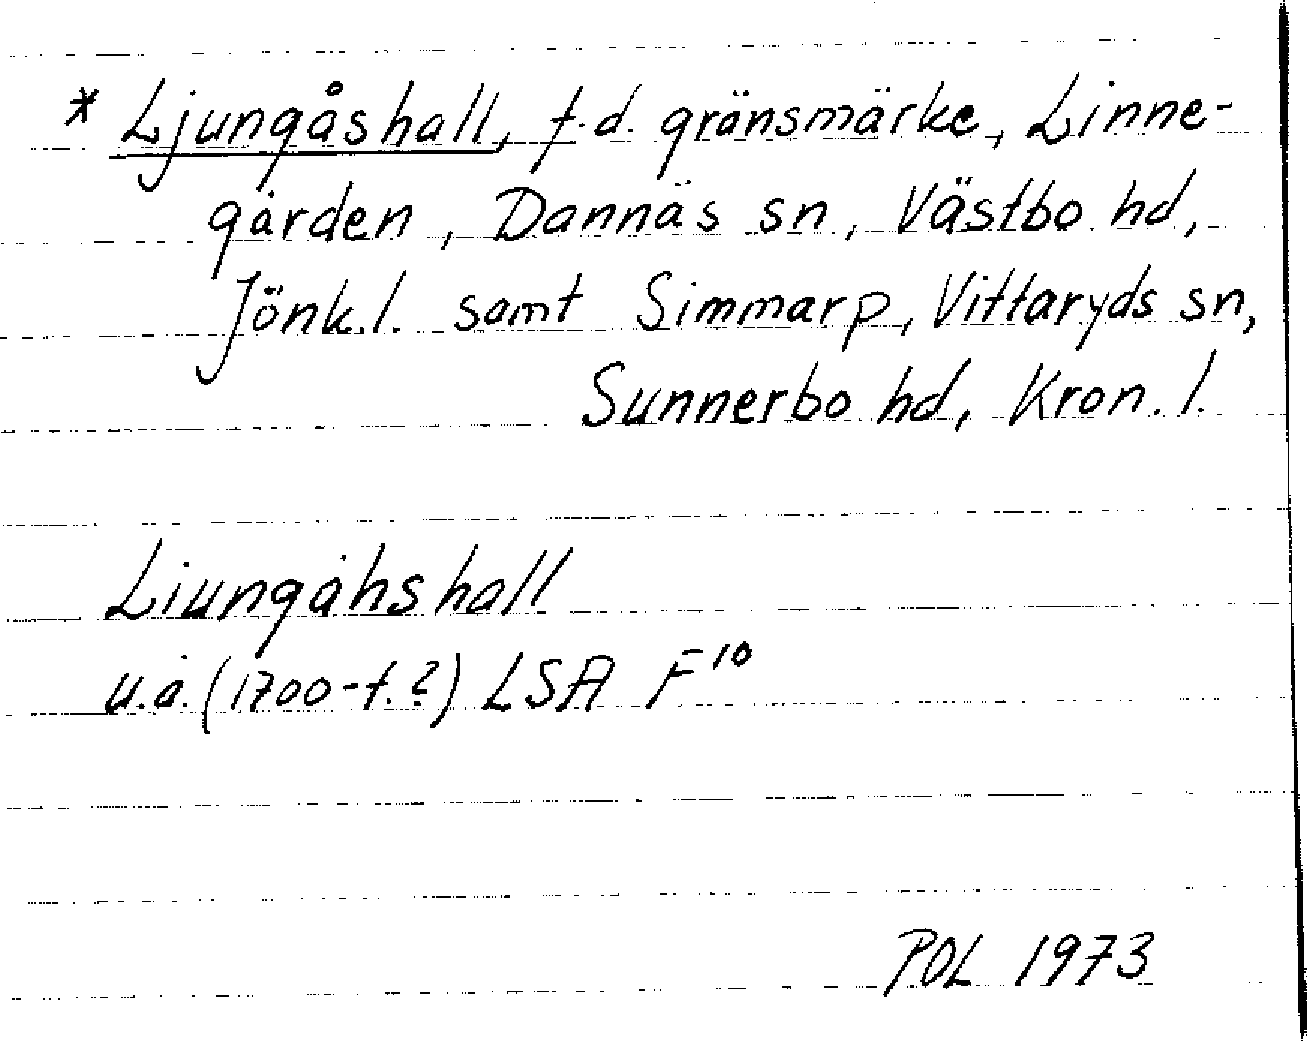 * Ljungåshall, f.d. gränsmärke, Linne-
gården, Dannäs sn, Västbo hd,
Jönk. l. samt Simmarp, Vittaryds sn,
Sunnerbo hd, Kron. l.
Liungåhs hall
u.å. (1700-t.?) LSA F10
POL 1973